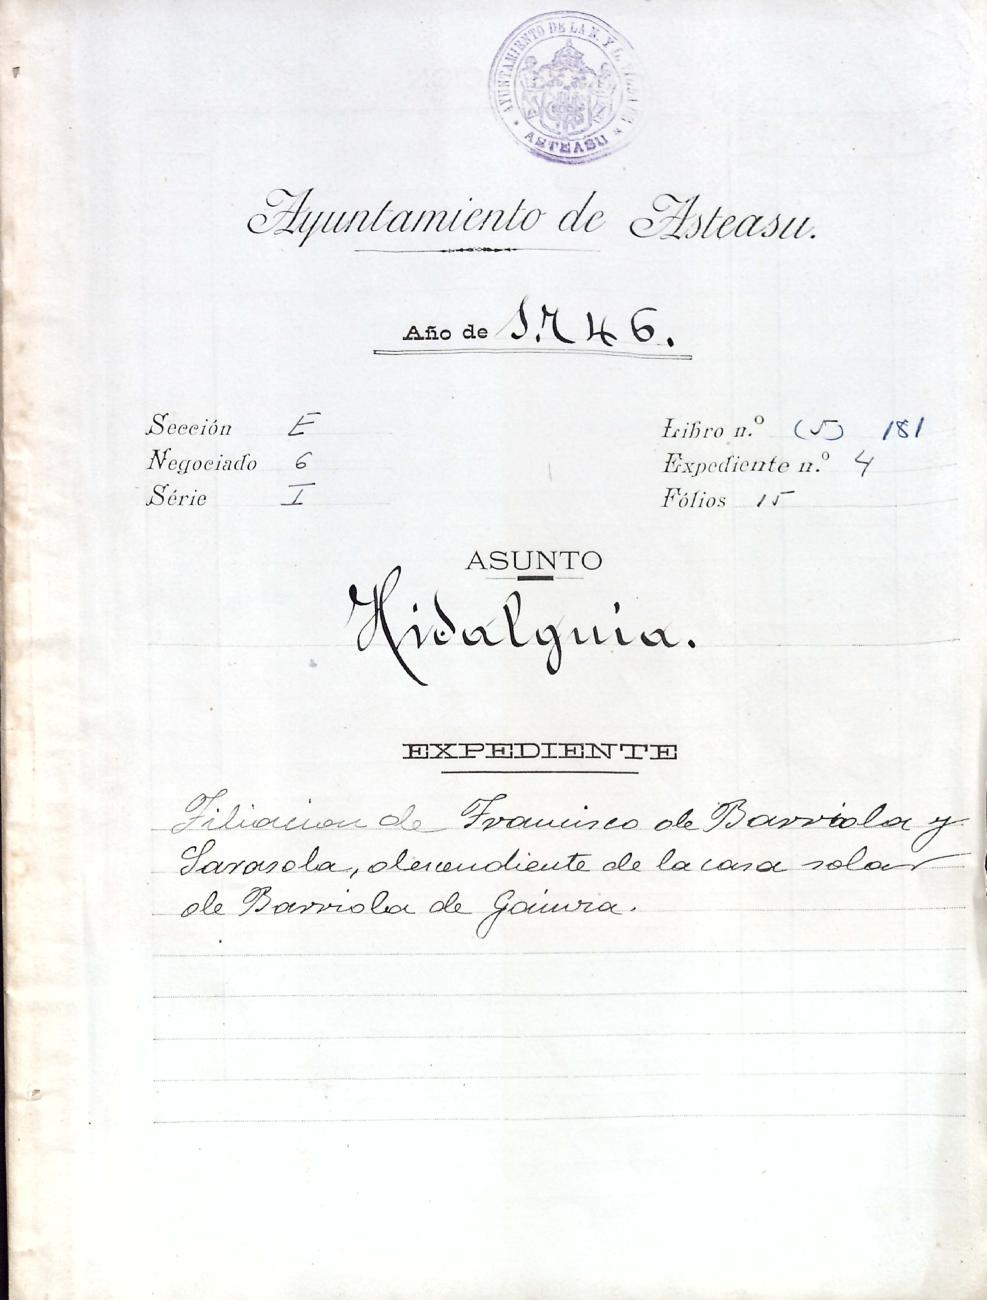 AYUNTAMIENTO DE LA N. Y L.
ASTEASU
Ayuntamiento de Asteasu.
Año de 1.746.
Sección E
Libro n.º (5) 181
Negociado 6
Expediente n.º 4
Série I
Fólios 15
ASUNTO
Hidalguia.
EXPEDIENTE
Filiacion de Francisco de Barriola y
Sarasola, descendiente de la casa solar
de Barriola de Gainza.